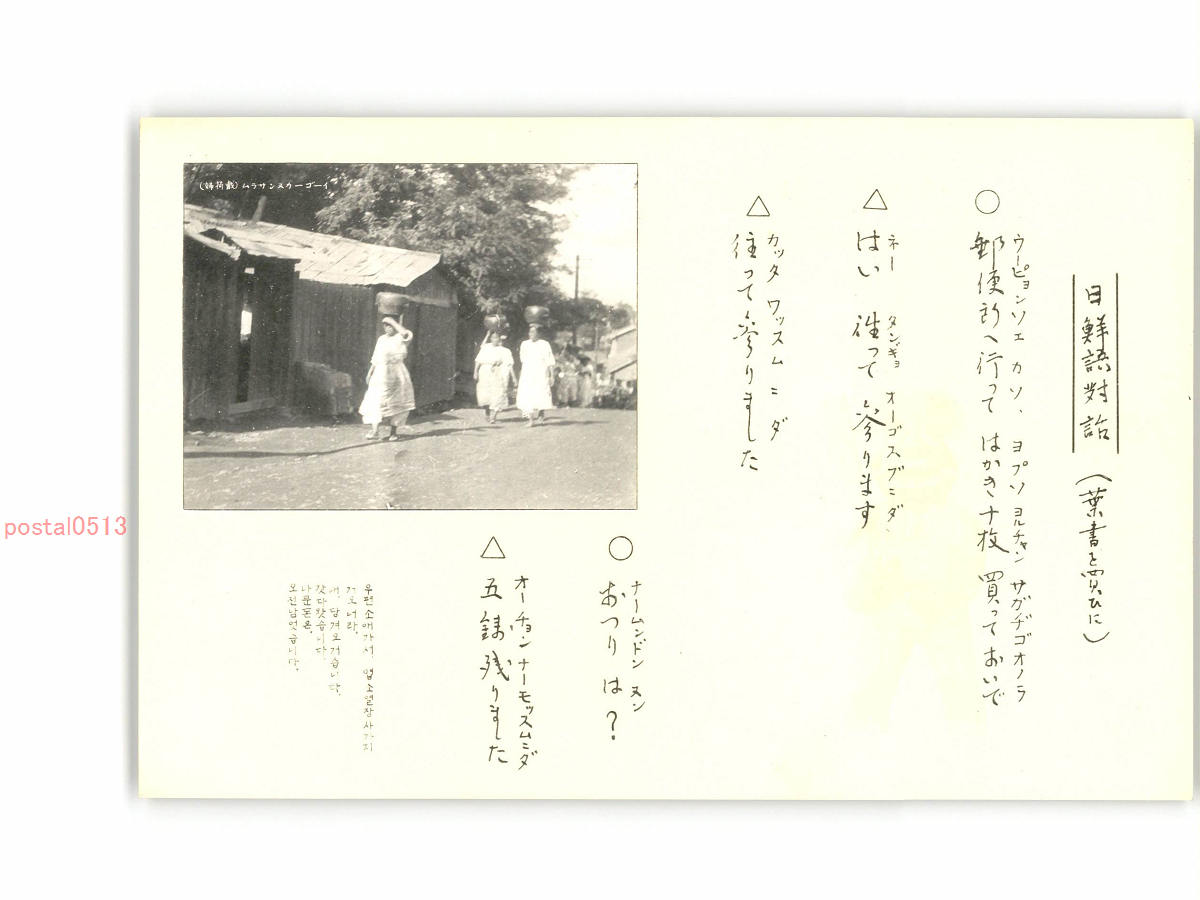 日鮮語對話
(葉書を買ひに)
○
ウーピョンソエ カソ、ヨプソ ヨルチャン サガヂゴオノラ
郵便所へ行って はかき十枚 買っておいで
△
ネー タンギョ オーゴスプニダ
はい 往って参ります
△
カッタ ワッスムニダ
往って参りました
○
ナームンドン ヌン
おつりは?
△
オーチョン ナーモッスムニダ
五銭残りました
우편소애가서 엽소열장사가지
거오너라.
녜, 당겨오거습니다.
갓다왓습니다.
나문돈은.
오전남엇습니다.
イーゴーカヌンサラム(戴荷婦)
postal0513